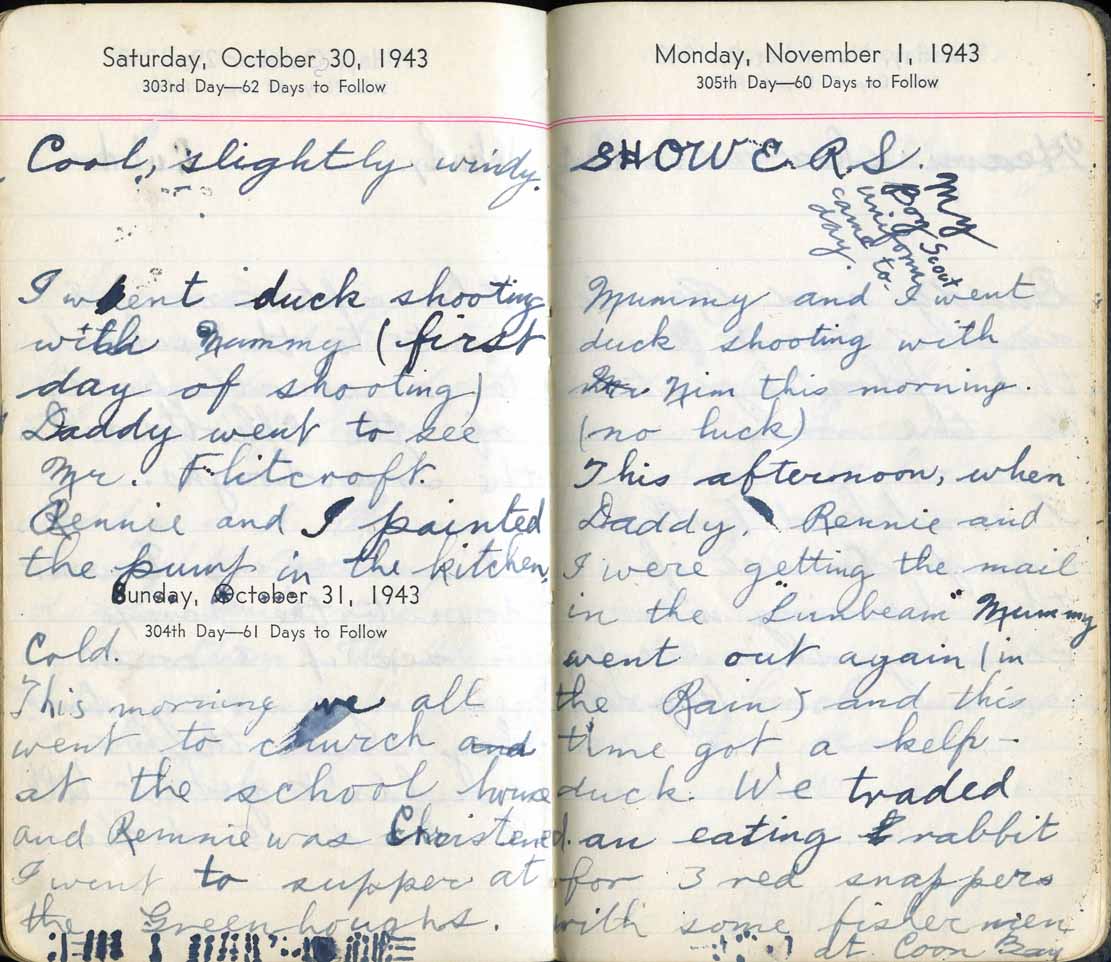 Saturday, October 30, 1943
303rd Day—62 Days to Follow
Cool, slightly windy.
I went duck shooting
with Mummy (first
day of shooting)
Daddy went to see
Mr. Flitcroft.
Rennie and I painted
the pump in the kitchen.
Sunday, October 31, 1943
304th Day—61 Days to Follow
Cold.
This morning we all
went to church and
at the school house
and Rennie was Christened.
I went to supper at
the Greenhoughs.
Monday, November 1, 1943
305th Day—60 Days to Follow
SHOWERS.
My
Boy Scout
uniform
came to-
day.
Mummy and I went
duck shooting with
Mr Nim this morning.
(no luck)
This afternoon, when
Daddy, Rennie and
I were getting the mail
in the "Sunbeam" Mummy
went out again (in
the Rain) and this
time got a kelp-
duck. We traded
an eating rabbit
for 3 red snappers
with some fishermen
at Coon Bay